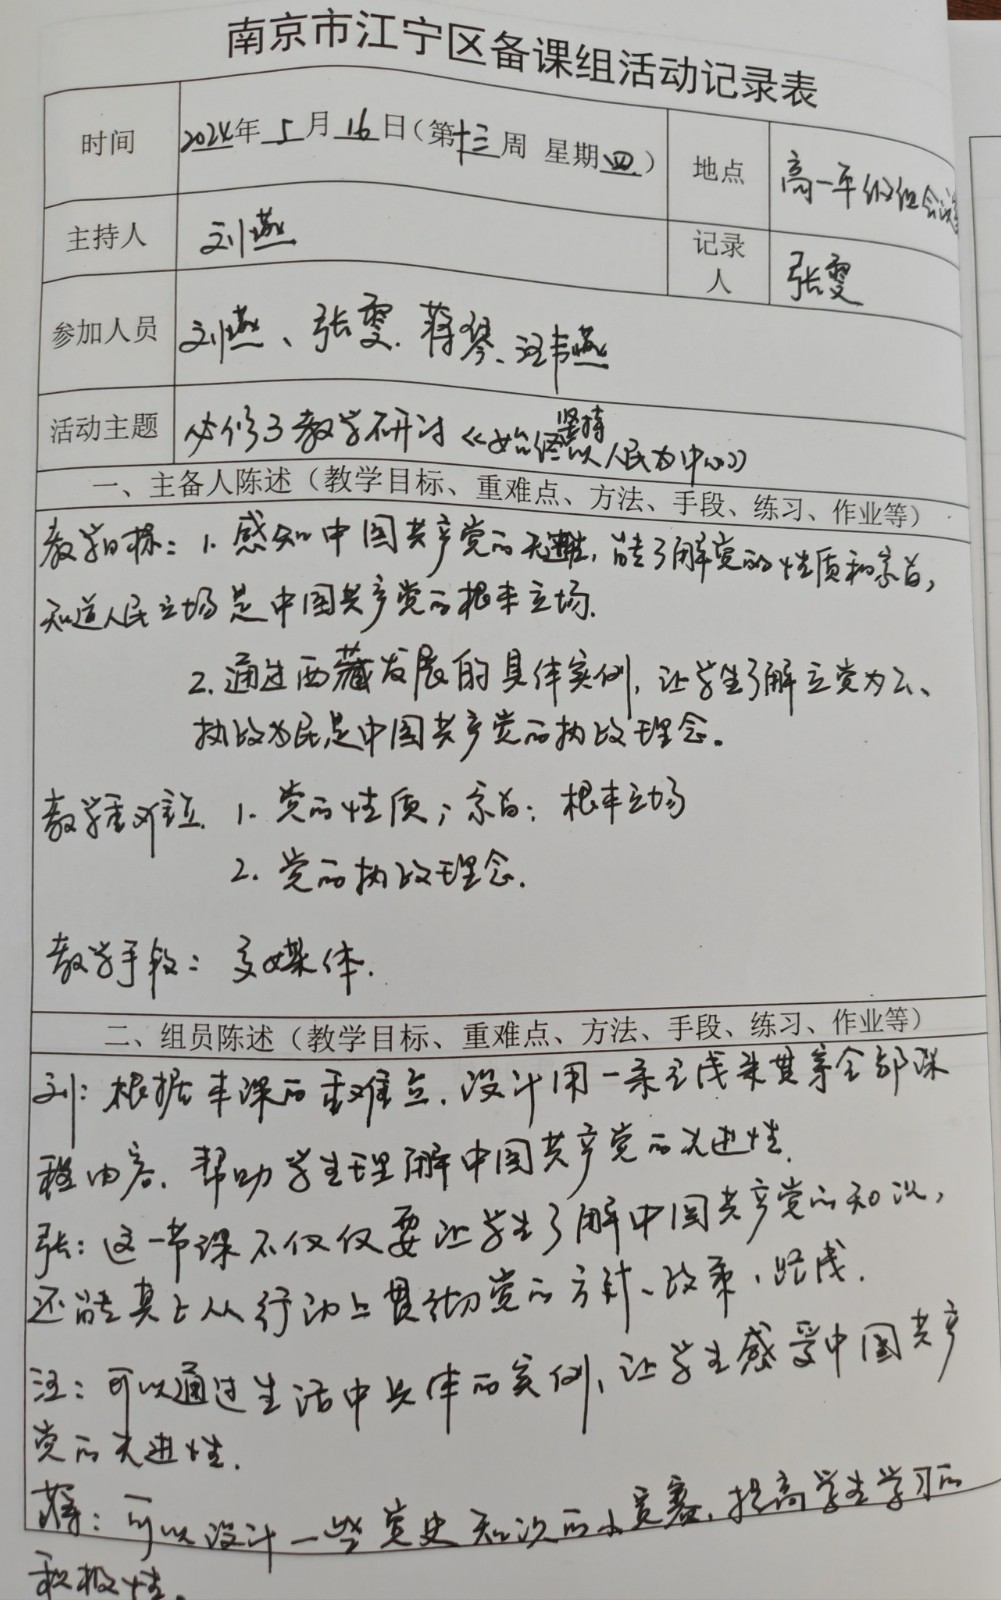 南京市江宁区备课组活动记录表
时间 2024年5月16日(第十三周 星期四) 地点 高一年级组会议室
主持人 刘燕 记录人 张雯
参加人员 刘燕、张雯、蒋琴、汪书燕
活动主题 必修3教学研讨《始终坚持以人民为中心》
一、主备人陈述（教学目标、重难点、方法、手段、练习、作业等）
教学目标：1. 感知中国共产党的先进性，能了解党的性质和宗旨，
知道人民立场是中国共产党的根本立场.
2. 通过西藏发展的具体实例，让学生了解立党为公、
执政为民是中国共产党的执政理念。
教学重难点 1. 党的性质；宗旨；根本立场
2. 党的执政理念.
教学手段：多媒体.
二、组员陈述（教学目标、重难点、方法、手段、练习、作业等）
刘：根据本课的重难点，设计用一条主线来贯穿全部课
程内容，帮助学生理解中国共产党的先进性.
张：这一节课不仅仅要让学生了解中国共产党的知识，
还能真正从行动上贯彻党的方针、政策、路线.
汪：可以通过生活中具体的实例，让学生感受中国共产
党的先进性.
蒋：可以设计一些党史知识的小竞赛，提高学生学习的
积极性。